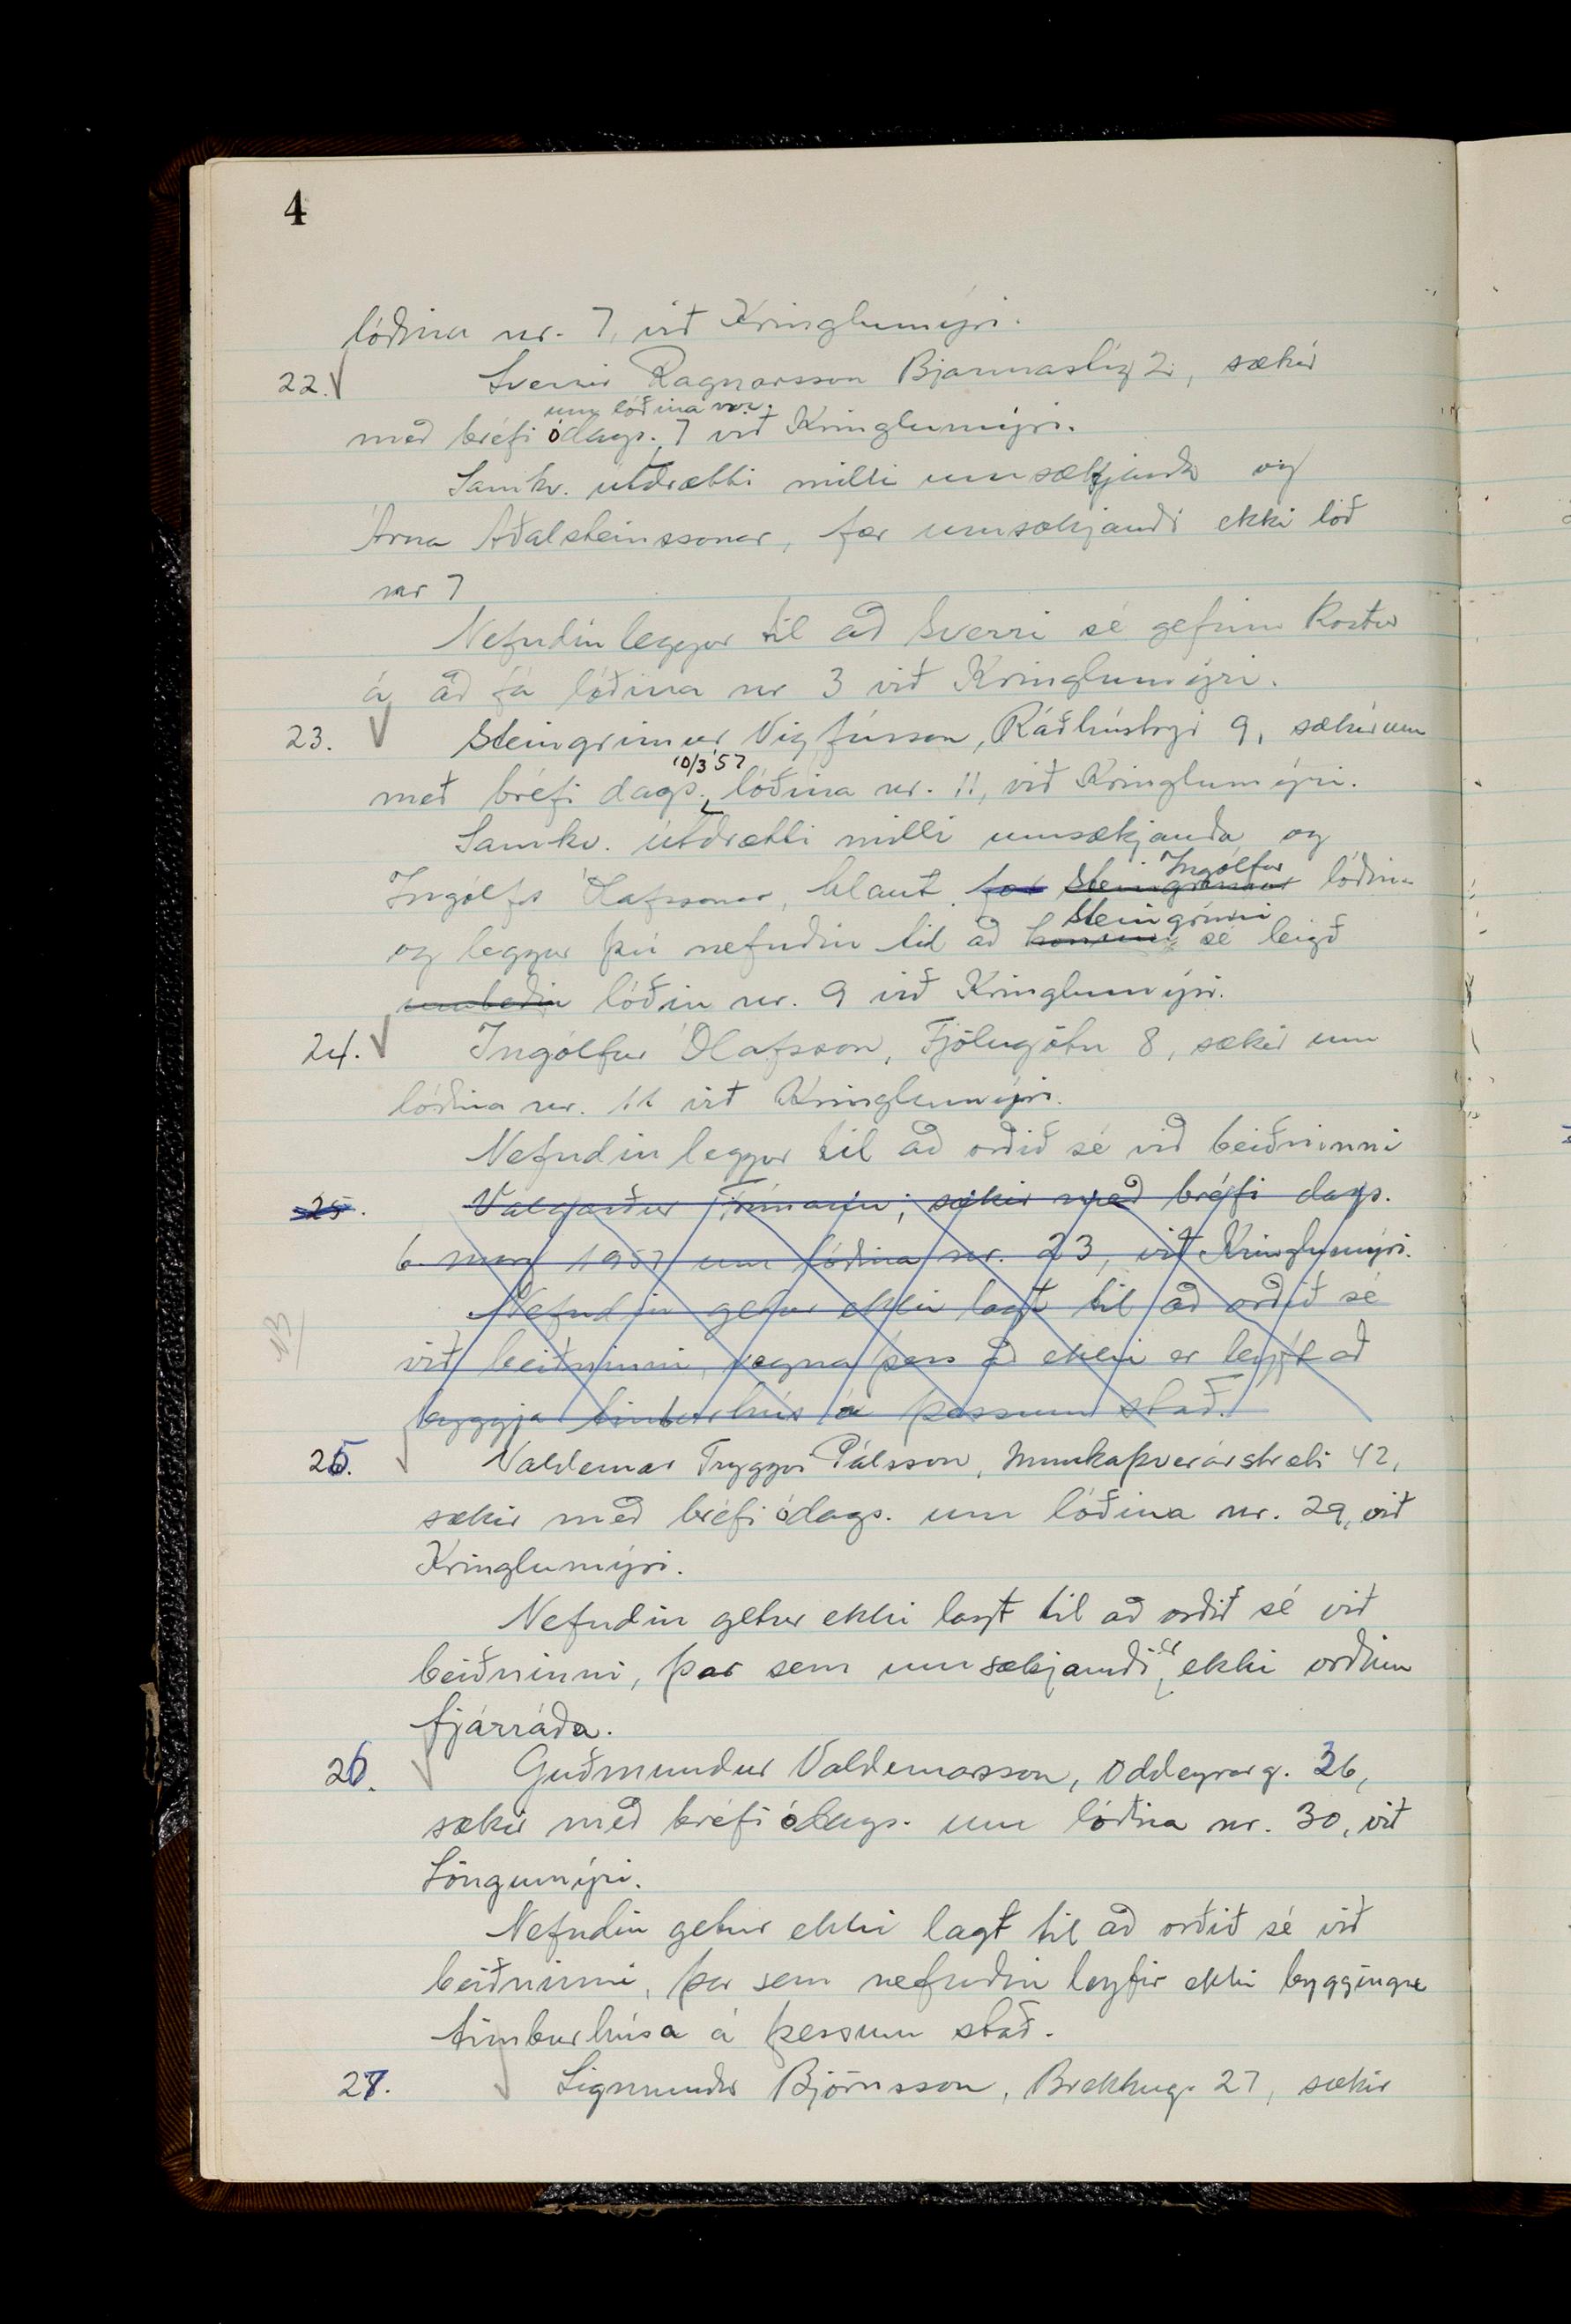 4
lóðina nr. 7, við Kringlumýri.
22. Sverrir Ragnarsson Bjarmastíg 2, sækir
um lóðina nr.
með bréfi ódags. 7 við Kringlumýri.
Samkv. útdrætti milli umsækjanda og
Árna Aðalsteinssonar, fær umsækjandi ekki lóð
nr 7
Nefndin leggur til að Sverri sé gefinn kostur
á að fá lóðina nr 3 við Kringlumýri.
23. Steingrímur Vigfússon, Ráðhústorgi 9, sækir um
10/3 '57
með bréfi dags. lóðina nr. 11, við Kringlumýri.
Samkv. útdrætti milli umsækjanda og
Ingólfur
Ingólfs Ólafssonar, hlaut fær Steingrímur lóðina
Steingrími
og leggur því nefndin til að honum sé leigð
umbeðin lóðin nr. 9 við Kringlumýri.
24. Ingólfur Ólafsson, Fjólugötu 8, sækir um
lóðina nr. 11 við Kringlumýri.
Nefndin leggur til að orðið sé við beiðninni
25. Valgarður Frímann, sækir með bréfi dags.
6. marz 1957 um lóðina nr. 23, við Kringlumýri.
Nefndin getur ekki lagt til að orðið sé
við beiðninni, vegna þess að ekki er leyft að
byggja timburhús á þessum stað.
25. Valdemar Tryggvi Pálsson, Munkaþverárstræti 42,
sækir með bréfi ódags. um lóðina nr. 29, við
Kringlumýri.
Nefndin getur ekki lagt til að orðið sé við
beiðninni, þar sem umsækjandi er ekki orðinn
fjárráða.
26. Guðmundur Valdemarsson, Oddeyrarg. 36,
sækir með bréfi ódags. um lóðina nr. 30, við
Löngumýri.
Nefndin getur ekki lagt til að orðið sé við
beiðninni, þar sem nefndin leyfir ekki byggingu
timburhúsa á þessum stað.
27. Sigmundur Björnsson, Brekkug. 27, sækir